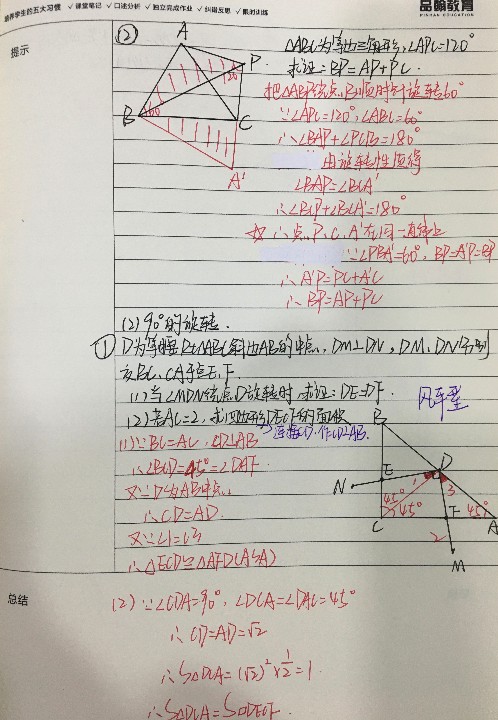 培养学生的五大习惯 √课堂笔记 √口述分析 √独立完成作业 √纠错反思 √限时训练
品翰教育
提示
(2)
△ABC为等边三角形,∠APC=120°
求证:BP=AP+PC.
把△ABP绕点B顺时针旋转60°
∵∠APC=120°,∠ABC=60°
∴∠BAP+∠PCB=180°
由旋转性质得
∠BAP=∠BCA'
∴∠BCP+∠BCA'=180°
☆ ∴点P、C、A'在同一直线上
∵∠PBA'=60°,BP=A'P=BP
∴A'P=PC+A'C
∴BP=AP+PC
A
P
B
C
A'
60°
120°
(2)90°的旋转.
① D为等腰Rt△ABC斜边AB的中点,DM⊥DN,DM、DN分别
交BC、CA于点E、F.
(1)当∠MDN绕点D旋转时,求证:DE=DF.
(2)若AC=2,求四边形DECF的面积
风车型
连接CD,作CD⊥AB.
(1)∵BC=AC,CD⊥AB
∴∠BCD=45°=∠DAF
又∵D为AB中点
∴CD=AD.
又∵∠1=∠3
∴△ECD≌△AFD(ASA)
B
E
D
N
C
F
A
M
45°
45°
45°
1
3
2
总结
(2)∵∠CDA=90°,∠DCA=∠DAC=45°
∴CD=AD=√2
∴S△DCA=(√2)²×1/2=1.
∴S△DCA=S□DECF